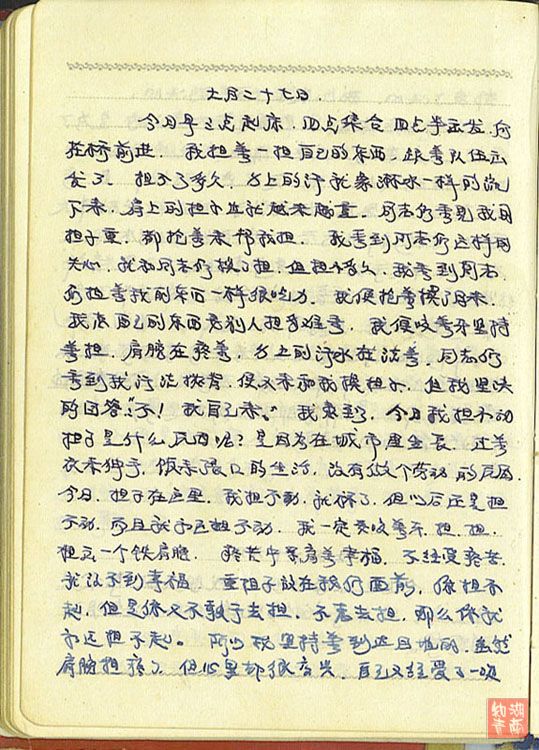 七月二十七日.
今日早三点起床. 四点集合 四点半出发. 向
桂桥前进. 我担着一担自己的东西. 跟着队伍出
发了. 担不了多久. 身上的汗就象淋水一样的流
下来. 肩上的担子也就越来越重. 同志们看见我的
担子重. 都抢着来帮我担. 我看到同志们这样的
关心. 我和同志们换了担. 但担不多久. 我看到同志
们担着我的东西一样很吃力. 我便抢着换了回来.
我底自己的东西总别人担着难看. 我便咬着牙坚持
着担. 肩膀在疼着. 身上的汗水在流着. 同志们
看到我汗流浃背. 便又来和我换担子. 但我坚决
的回答:“不! 我自己来。” 我来到. 今日我担不动
担子是什么原因呢? 是因为在城市里生长. 过着
衣来伸手. 饭来张口的生活. 没有做个劳动的原因.
今日. 担子在这里. 我担不动. 就休了. 但以后还是担
不动. 而且就永远担不动. 我一定要咬着牙. 担. 担.
担出一个铁肩膀. 疼苦中孕育着幸福. 不经受疼苦.
就认不到幸福 重担子放在我们面前. 你担不
起. 但是你又不敢于去担. 不愿去担. 那么你就
永远担不起。 所以我坚持着到达目地的. 虽然
肩膀担痛了. 但心里却很高兴. 自己又经受了一次
湖南
知青